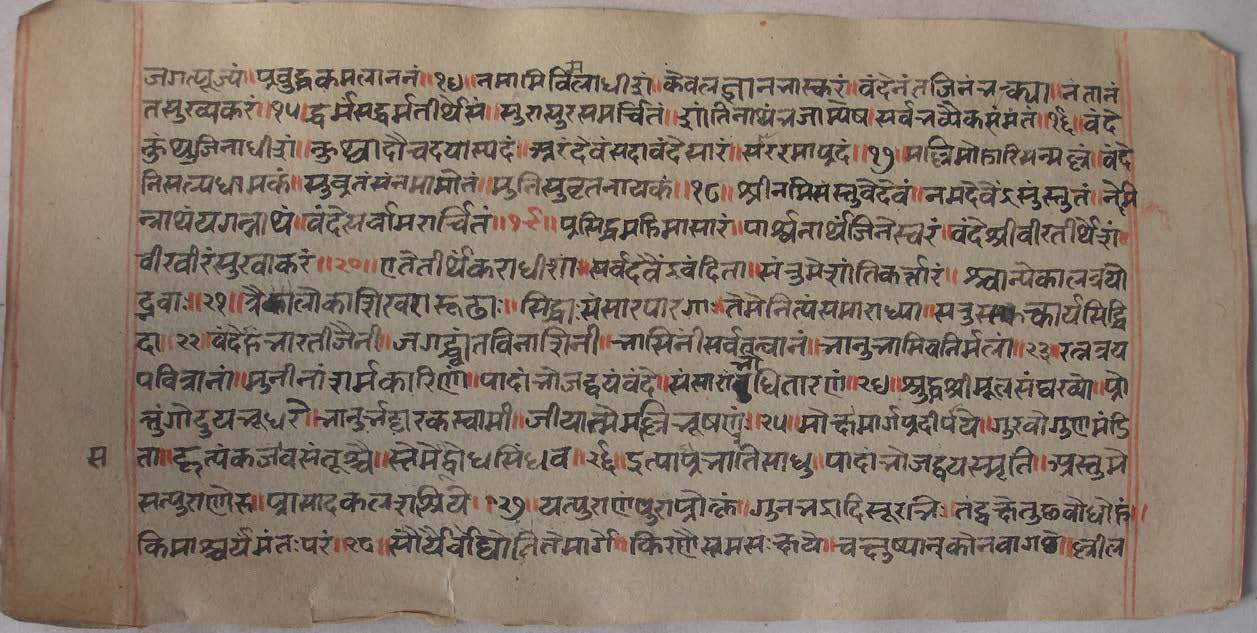 जगत्पूज्यं॥प्रबुद्धकमलाननं॥१४॥नमामि विमलाधीशं॥केवलज्ञानभास्करं॥वंदेनंतजिनंभक्त्या॥नंतानं
तसुखाकरं॥१५॥द्धर्मसद्धर्मतीर्थेसं॥सुरासुरसमर्चितं॥शांतिनाथंभजाम्येष॥सर्वभव्यैकसंमतं॥१६॥वंदे
कुंथुजिनाधीशं॥कुंथ्वादौचदयास्पदं॥अरंदेवंसदावंदेसारं॥सररमाप्रदं॥१७॥मल्लिमोहारिमन्मल्लं॥वंदे
निसत्पधामकं॥सुव्रतंसंनमामोतं॥मुनिसुवृतनायकं॥१८॥श्रीनमिसंस्तुवेदेवं॥नमदेवेंऽसुंस्तुतं॥नेमि
न्नाथंयगन्नाथं॥वंदेसर्वामरार्चितं॥१९॥प्रसिद्धमहिमासारं॥पार्श्वनाथंजिनेस्वरं॥वंदेश्रीवीरतीर्थेशं॥
वीरवीरंसुखाकरं॥२०॥एतेतीर्थंकराधीशा॥सर्वदेवेंऽवंदिता॥संतुमेशांतिकर्त्तारं॥श्वान्पेकालत्रयो
द्भवाः॥२१॥त्रैकालोकाशिखरारूढाः॥सिद्धासंसारपारगा॥तेमेनित्यंसमाराध्या॥संतुसत्कार्यसिद्धि
दा॥२२॥वंदेहंभारतीजैनी॥जगद्ध्वांतविनाशिनी॥भासिनीसर्वतत्वानं॥भानुभामिवनिर्मला॥२३॥रत्नत्रय
पवित्रानां॥मुनीनांशर्मकारिणां॥पादांभोजद्वयंवंदे॥संसारांबुधितारणं॥२४॥श्रुद्धश्रीमूलसंघरव्यो॥प्रो
त्तुंगोदुयभूधरो॥भानुर्भट्टारकस्वामी॥जीयात्मेमल्लिभूषणः॥२५॥मोक्षमार्गप्रदीर्पये॥गुरवोगुणमंडि
ता॥हृत्पंकजेवसंतूश्चै॥स्तेमेद्बोधसिंधव॥२६॥इत्पाप्तभातिसाधु॥पादांभोजद्वयस्मृति॥अस्तुमे
सत्पुराणेस॥प्रासादकलशश्रिये॥२७॥यत्पुराणंपुराप्रोक्तं॥गुनभऽादिसूरनि॥तंद्वक्षेतुछबोधोहं॥
किमाश्चर्यमंतःपरं॥२८॥सौर्यैर्वोद्योतितेमार्गे॥किरणैस्तमसःक्षये॥चक्षुष्पानकोनवागछ॥ल्लील